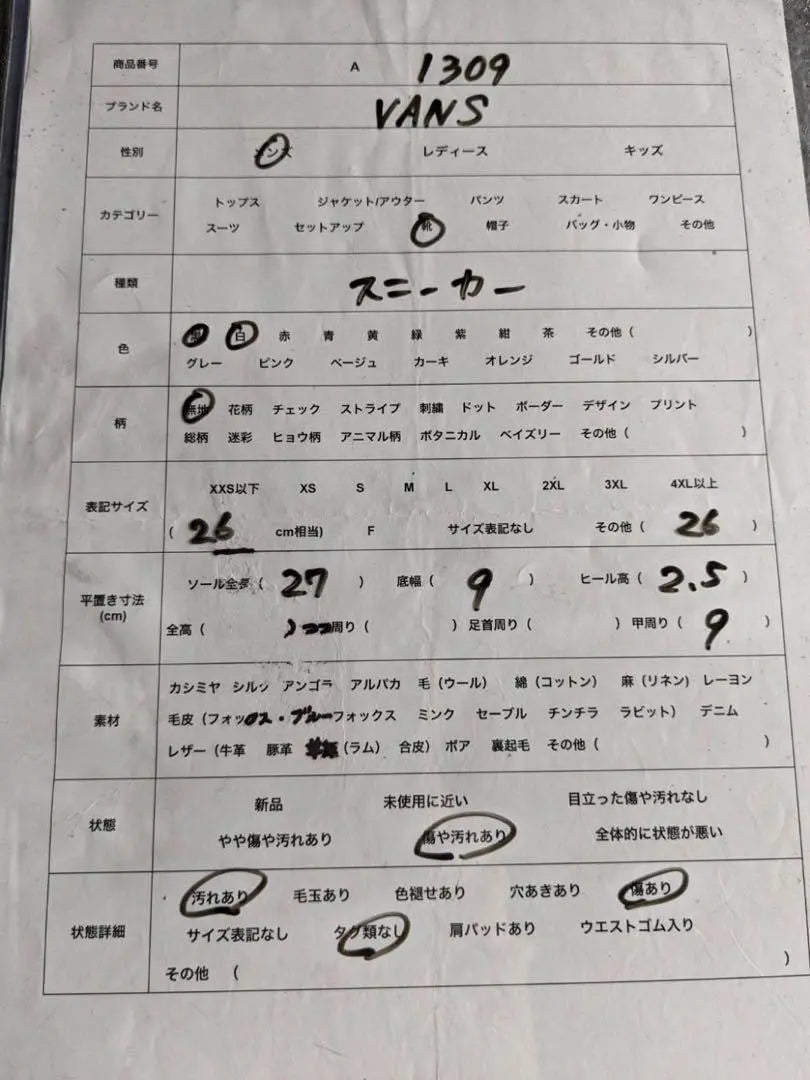 商品番号 A 1309
ブランド名 VANS
性別 メンズ レディース キッズ
カテゴリー トップス ジャケット/アウター パンツ スカート ワンピース
スーツ セットアップ 靴 帽子 バッグ・小物 その他
種類 スニーカー
色 白 赤 青 黄 緑 紫 紺 茶 その他 ( )
グレー ピンク ベージュ カーキ オレンジ ゴールド シルバー
柄 無地 花柄 チェック ストライプ 刺繍 ドット ボーダー デザイン プリント
総柄 迷彩 ヒョウ柄 アニマル柄 ボタニカル ペイズリー その他 ( )
表記サイズ XXS以下 XS S M L XL 2XL 3XL 4XL以上
( 26 cm相当) F サイズ表記なし その他 ( 26 )
平置き寸法 (cm) ソール全長 ( 27 ) 底幅 ( 9 ) ヒール高 ( 2.5 )
全高 ( ) 周り ( ) 足首周り ( ) 甲周り ( 9 )
素材 カシミヤ シルク アンゴラ アルパカ 毛（ウール） 綿（コットン） 麻（リネン） レーヨン
毛皮（フォックス・ブルーフォックス ミンク セーブル チンチラ ラビット） デニム
レザー（牛革 豚革 （ラム） 合皮） ボア 裏起毛 その他 ( )
状態 新品 未使用に近い 目立った傷や汚れなし
やや傷や汚れあり 傷や汚れあり 全体的に状態が悪い
状態詳細 汚れあり 毛玉あり 色褪せあり 穴あきあり 傷あり
サイズ表記なし タグ類なし 肩パッドあり ウエストゴム入り
その他 ( )